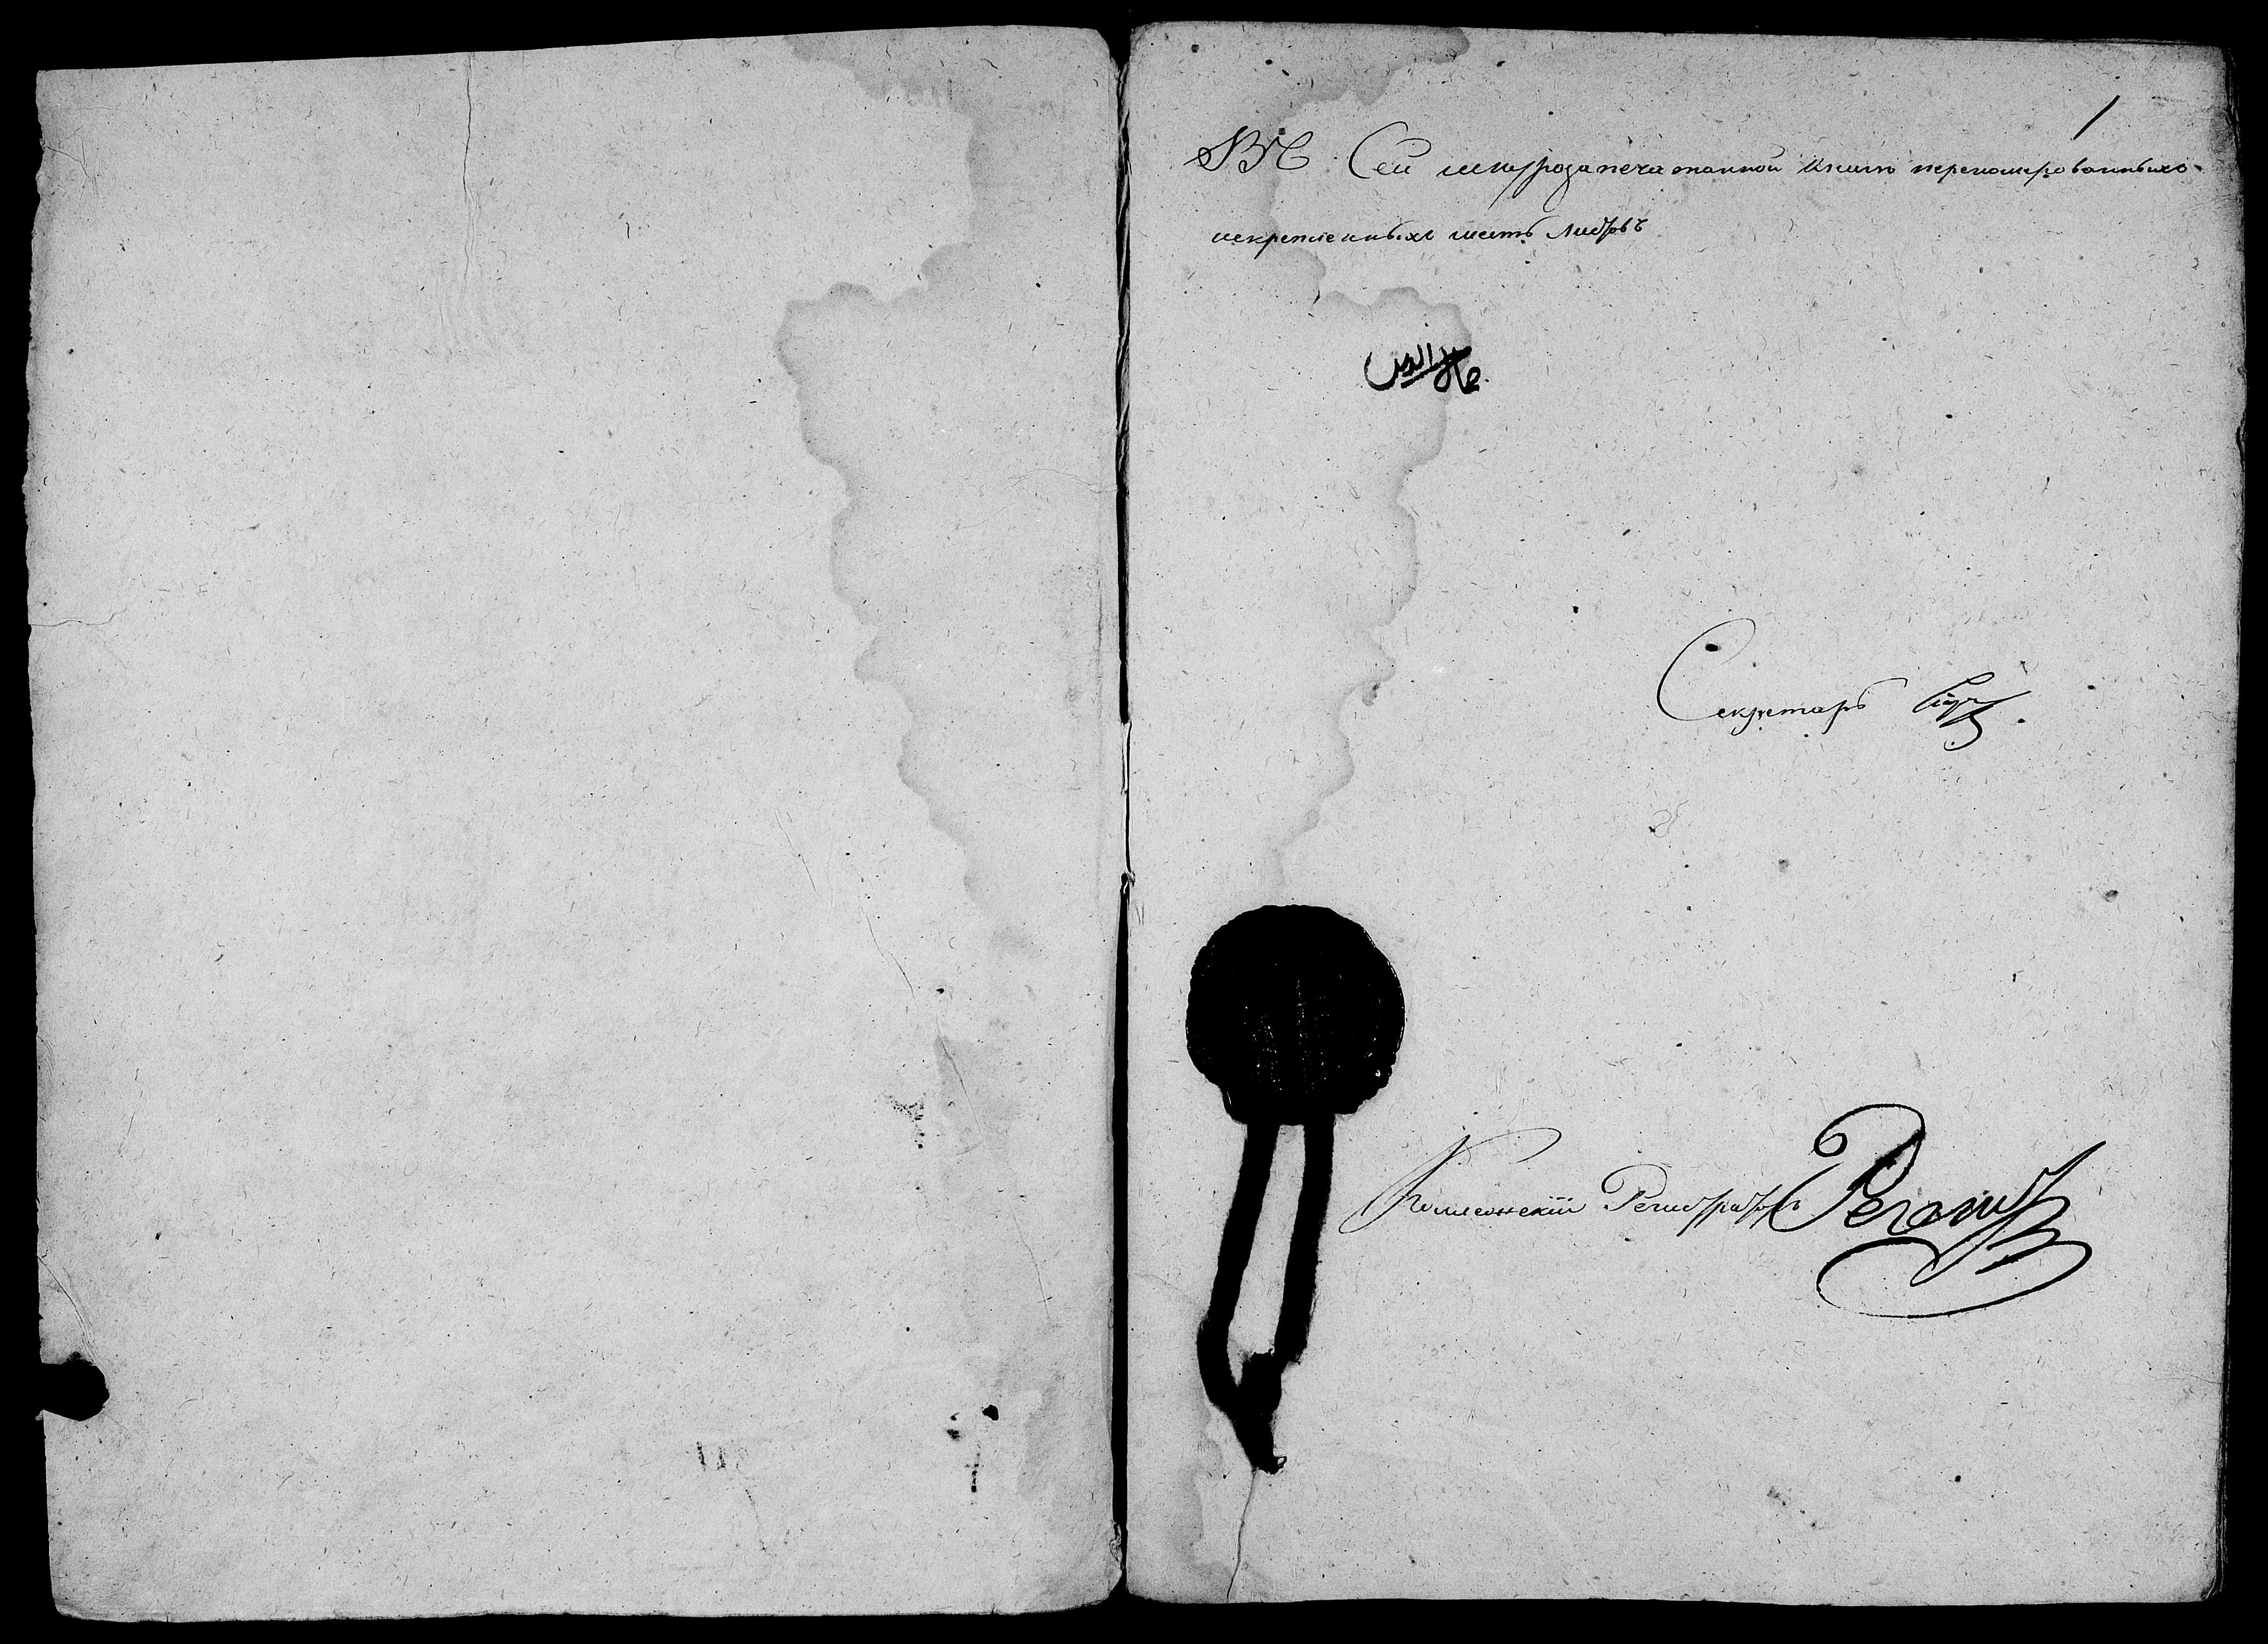 1
Въ Сей шнурозапечатанной книге перенумерованныхъ
искрепленныхъ шесть листовъ
Секретарь
Коллежский Регистраторъ